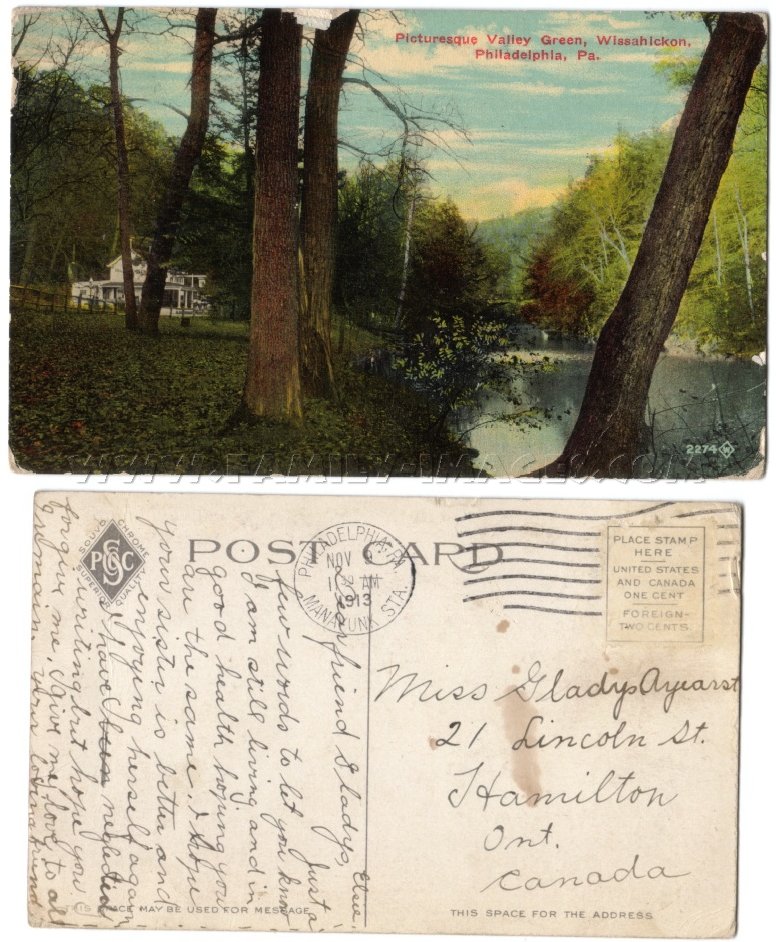 Picturesque Valley Green, Wissahickon,
Philadelphia, Pa.
2274
WWW.FAMILY-IMAGES.COM
SOUVO CHROME
SUPERIOR QUALITY
POST CARD
PHILADELPHIA, PA.
NOV
AM
1913
MANAYUNK STA.
PLACE STAMP
HERE
UNITED STATES
AND CANADA
ONE CENT
FOREIGN-
TWO CENTS.
Dear friend Gladys,
Just a
few words to let you know
I am still living and in
good health hoping you
are the same. I hope
your sister is better and
enjoying herself again
I have neglected
writing but hope you
forgive me, I give my love to all
I remain, your friend
Elsie.
Miss Gladys Ayearst
21 Lincoln St.
Hamilton
Ont.
Canada
THIS SPACE MAY BE USED FOR MESSAGE
THIS SPACE FOR THE ADDRESS